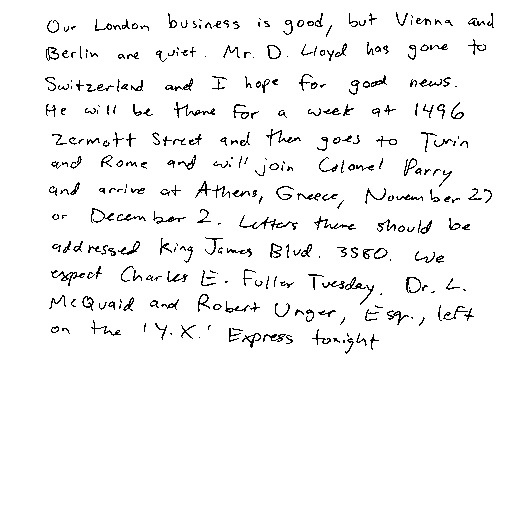 Our London business is good, but Vienna and
Berlin are quiet. Mr. D. Lloyd has gone to
Switzerland and I hope for good news.
He will be there for a week at 1496
Zermott Street and then goes to Turin
and Rome and will join Colonel Parry
and arrive at Athens, Greece, November 27
or December 2. Letters there should be
addressed King James Blvd. 3580. We
expect Charles E. Fuller Tuesday. Dr. L.
McQuaid and Robert Unger, Esq., left
on the 'Y.X.' Express tonight